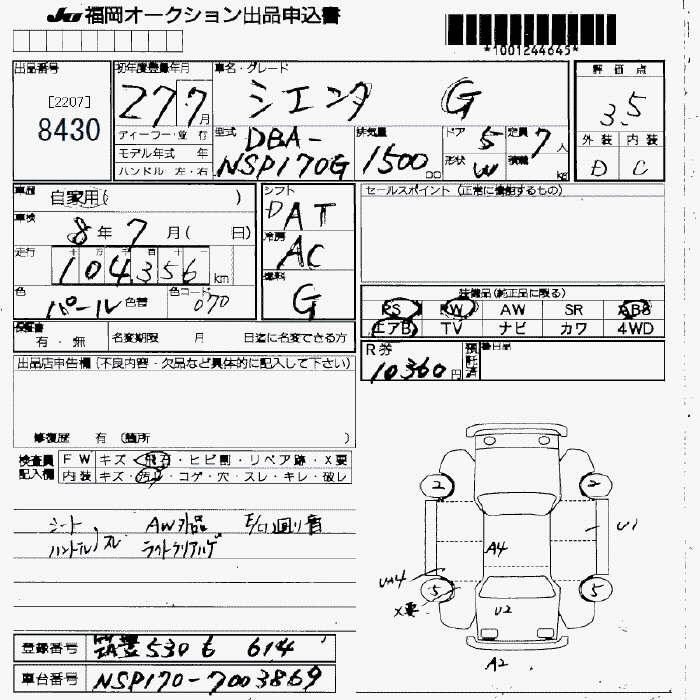 JU 福岡オークション出品申込書
*1001244645*
出品番号
[2207]
8430
初年度登録年月
27 7月
ディーラー・並行
モデル年式 年
ハンドル 左・右
車名・グレード
シエンタ G
型式 DBA-NSP170G
排気量 1500 cc
ドア 5
形状 W
定員 7人
積載 kg
評価点
3.5
外装 内装
D C
車歴 自家用( )
車検 8年7月( 日)
走行 104,356 km
色 パール 色替
色コード 070
シフト DAT
冷房 AC
燃料 G
セールスポイント (正常に機能するもの)
装備品(純正品に限る)
PS PW AW SR ABS
エアB TV ナビ カワ 4WD
保証書 有・無
名変期限 月 日迄に名変できる方
R券 10360円
預託済
後日品
出品店申告欄(不良内容・欠品など具体的に記入して下さい)
修復歴 有 (箇所 )
検査員記入欄
FW キズ・飛石・ヒビ割・リペア跡・X要
内装 キズ・汚れ・コゲ・穴・スレ・キレ・破レ
シート ハンドル スレ
AW外品
ライトクリアハゲ
2 2
U1
A4
UA4
5 5
X要
U2
A2
登録番号 筑豊 530 も 614
車台番号 NSP170-7003869